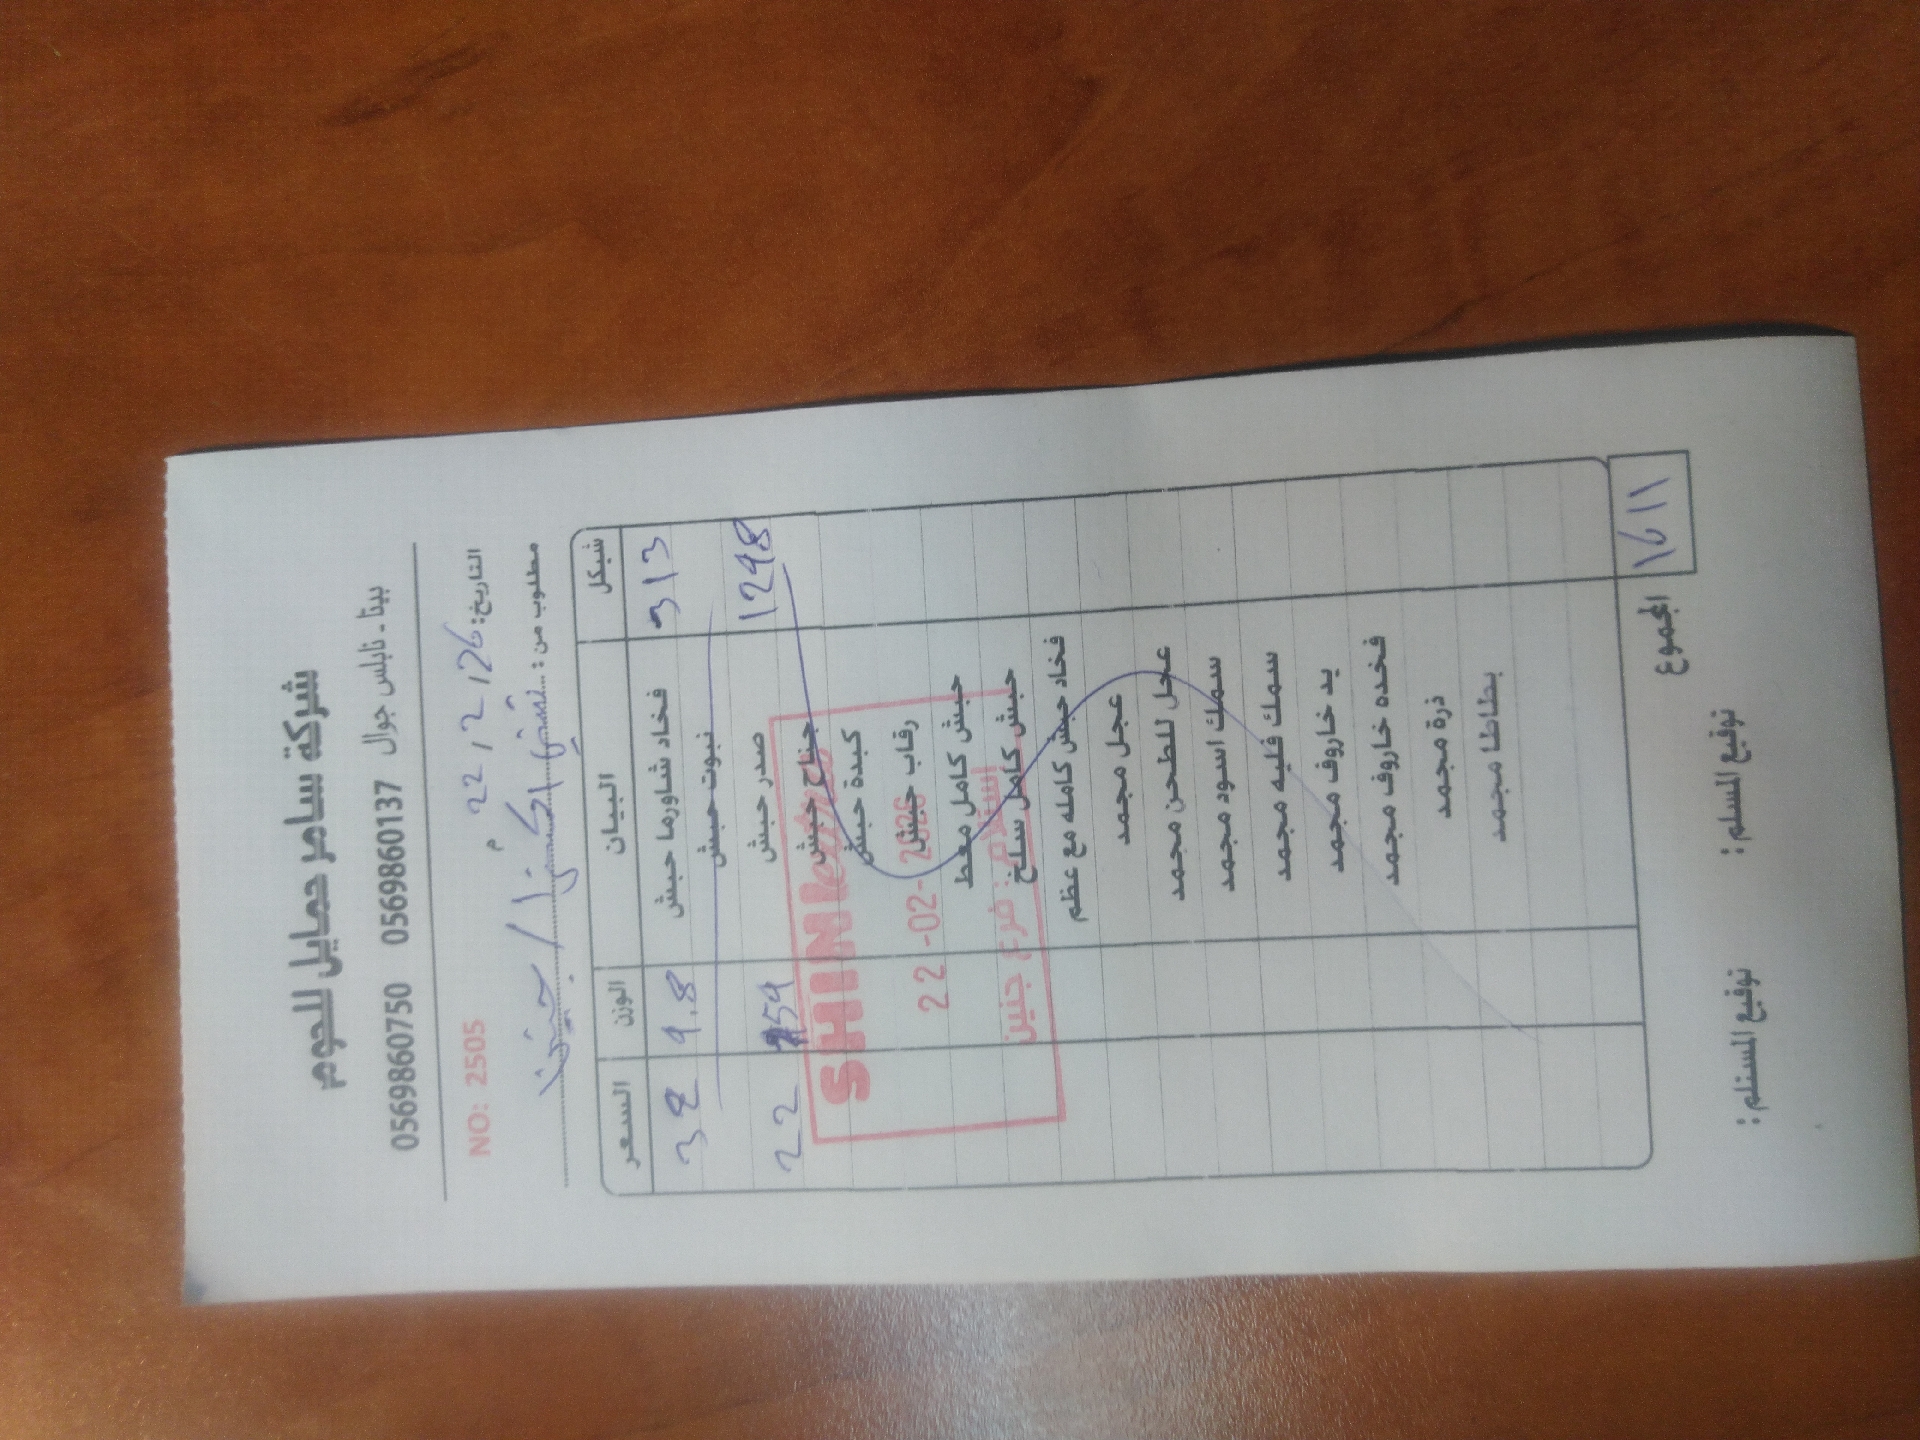 شركة سامر حمايل للحوم
بيتا - نابلس جوال 0569860137 0569860750
التاريخ: 22/2/26 م NO: 2505
مطلوب من: / جنين
السعر الوزن البيان شيكل
32 9.8 فخاد شاورما حبش 313
نبوت حبش
22 59 صدر حبش 1298
جناح حبش
كبدة حبش
رقاب حبش
حبش كامل معط
حبش كامل سلخ
فخاد حبش كامله مع عظم
عجل مجمد
عجل للطحن مجمد
سمك اسود مجمد
سمك فليه مجمد
يد خاروف مجمد
فخده خاروف مجمد
ذرة مجمد
بطاطا مجمد
المجموع 1611
توقيع المستلم: توقيع المسلم:
SHINI
22-02-2026
استلام: فرع جنين